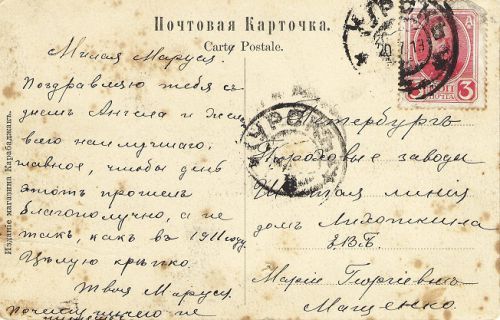 Почтовая Карточка.
Carte Postale.
Милая Маруся.
Поздравляю тебя съ
днемъ Ангела и
всего наилучшаго,
главное, чтобы день
этотъ прошелъ
благополучно, а не
такъ, какъ въ 1911 году
Цѣлую крѣпко
Твоя Маруся.
Почему ничего не
Изданіе магазина Карабаджакъ.
КУРСКЪ
20
3
КУРСКЪ
Петербургъ
Пороховые заводы
линія
домъ
Маріи Георгіевнѣ
Мащенко